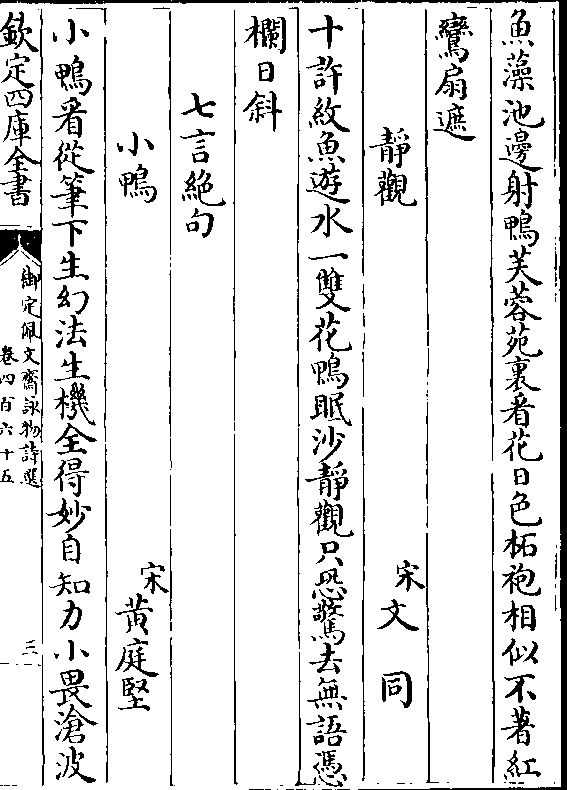 魚藻池邊射鴨芙蓉苑裏看花日色柘袍相似不著紅
鸞扇遮
靜觀
宋文同
十許紋魚遊水一雙花鴨眠沙靜觀只恐驚去無語憑
欄日斜
七言絕句
小鴨
宋黃庭堅
小鴨看從筆下生幻法生機全得妙自知力小畏滄波
欽定四庫全書
御定佩文齋詠物詩選
卷四百六十五
三